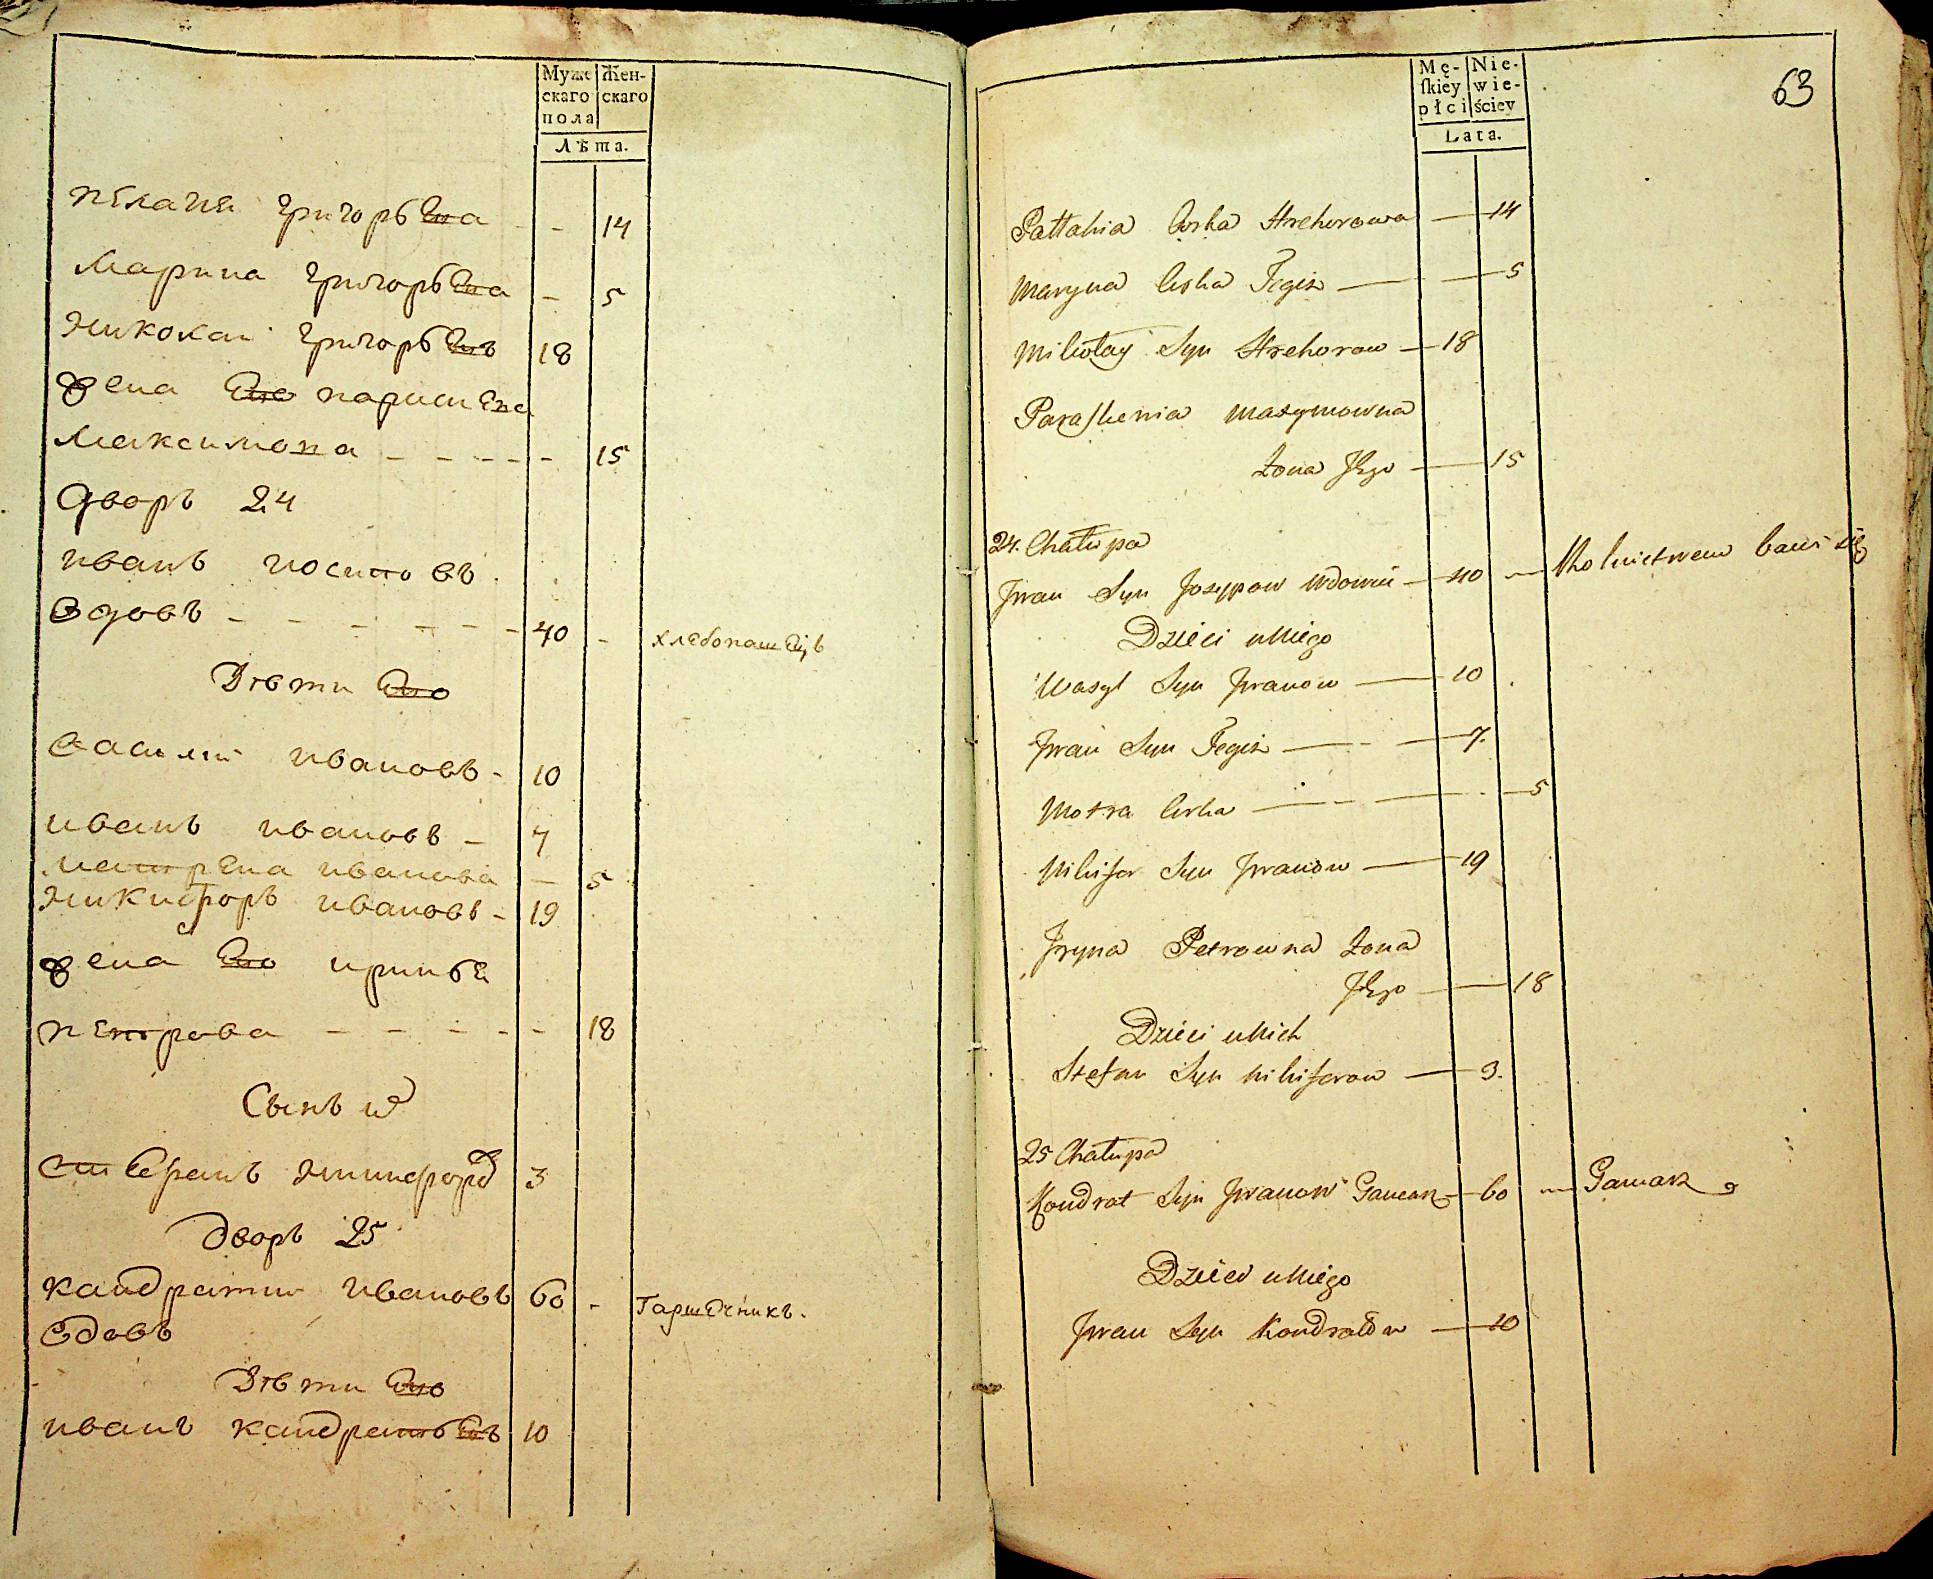 Муже Жен-
скаго скаго
пола
Лѣта.
Григорьева 14
Марина Григорьева - 5
Николаи Григорьевъ 18
жена Ево
Максимова - - - - 15
Дворъ 24
иванъ иосиповъ
вдовъ - - - - - - 40 - хлебопашецъ
Дѣти Ево
василий ивановъ - 10
иванъ ивановъ - 7
матрена иванова - 5
никифоръ ивановъ - 19
жена Ево
петрова - - - - - 18
Сынъ их
3
Дворъ 25
кандратий ивановъ 60 - Гаршечникъ.
вдовъ
Дѣти Ево
иванъ кандратьевъ 10
63
Mę- Nie-
ſkiey wie-
płci ściey
Lata.
Pałłahia Corka Hrehorowa 14
Maryna Corka Tegiż 5
Mikołay Syn Hrehorow 18
Paraſkenia Maxymowna
Żona Jego 15
24. Chałupa
Jwan Syn Jozypow Wdowiec 40 Rolnictwem bawi się
Dzieci u Niego
Wasyl Syn Jwanow 10
Jwan Syn Tegiż 7.
Motra Corka 5
Nikifor Syn Jwanow 19
Jryna Petrowna Żona
Jego 18
Dzieci u Nich
Stefan Syn Nikiforow 3.
25 Chałupa
Kondrat Syn Jwanow Garncarz 60 Garncarz
Dzieci u Niego
Jwan Syn Kondratow 10